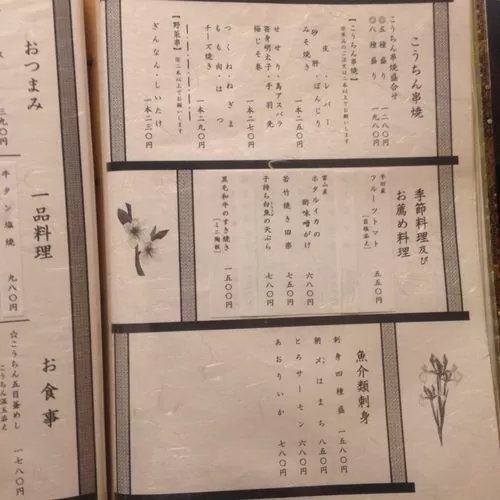 こうちん串焼
こうちん串焼盛合せ
◎五種盛り 一二八〇円
◎八種盛り 一九八〇円
【こうちん串焼】
※単品のご注文は二本以上でお願いします
皮・レバー
砂肝・ぼんじり
みそ焼き
一本二五〇円
せせり・鳥アスパラ
笹身明太子・手羽先
梅じそ巻
一本二七〇円
つくね・ねぎま
もも肉・はつ
チーズ焼き
一本二九〇円
【野菜串】
※二本以上でお願いします
ぎんなん・しいたけ
一本二三〇円
季節料理及び
お薦め料理
フルーツトマト
五五〇円
富山産
ホタルイカの
酢味噌がけ 六八〇円
若竹焼き田楽 五七〇円
子持ち白魚の天ぷら 七八〇円
黒毛和牛のすき焼き
[ミニ陶板] 一五〇〇円
魚介類刺身
刺身四種盛 一五八〇円
はまち 八五〇円
とろサーモン 七八〇円
あおりいか 七八〇円
おつまみ
三九〇円
一品料理
牛タン塩焼 九八〇円
お食事
☆こうちん五目釜めし
こうちん温玉添え
一七八〇円